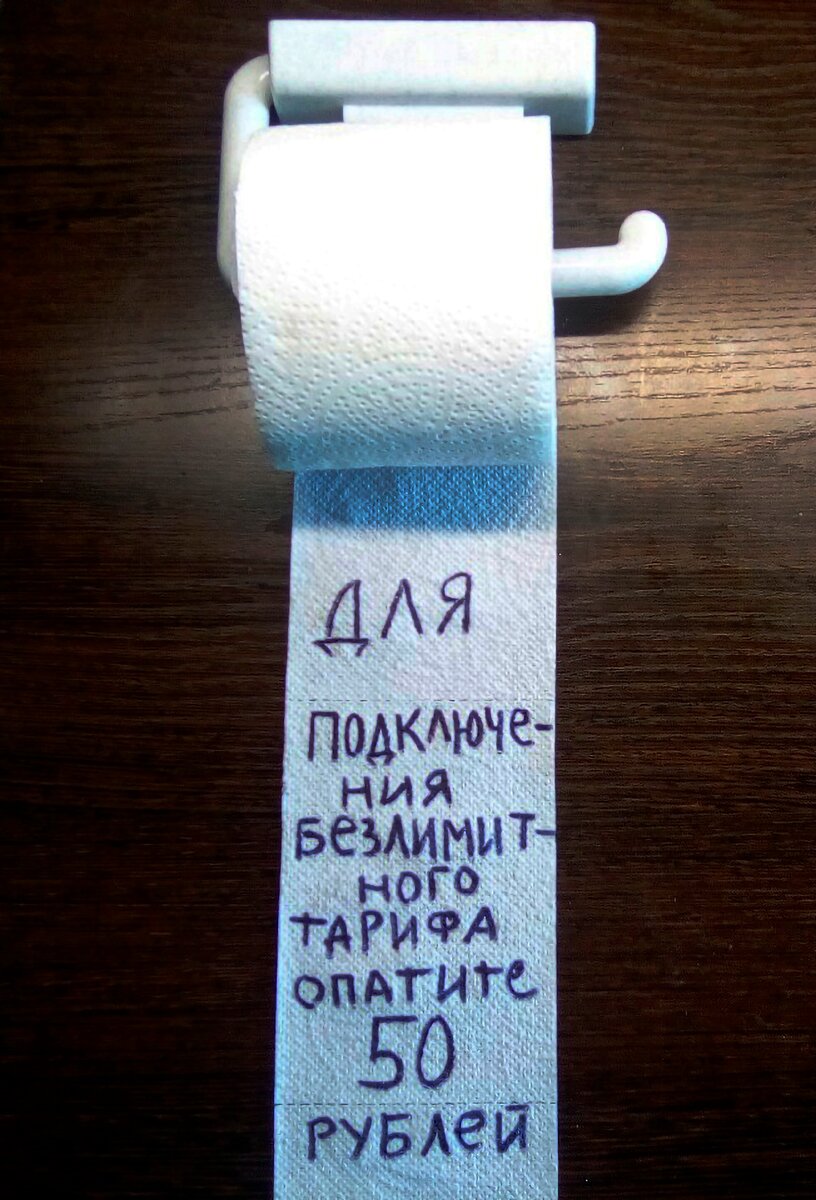 ДЛЯ
ПОДКЛЮЧЕ-
НИЯ
БЕЗЛИМИТ-
НОГО
ТАРИФА
ОПАТИТЕ
50
РУБЛЕЙ